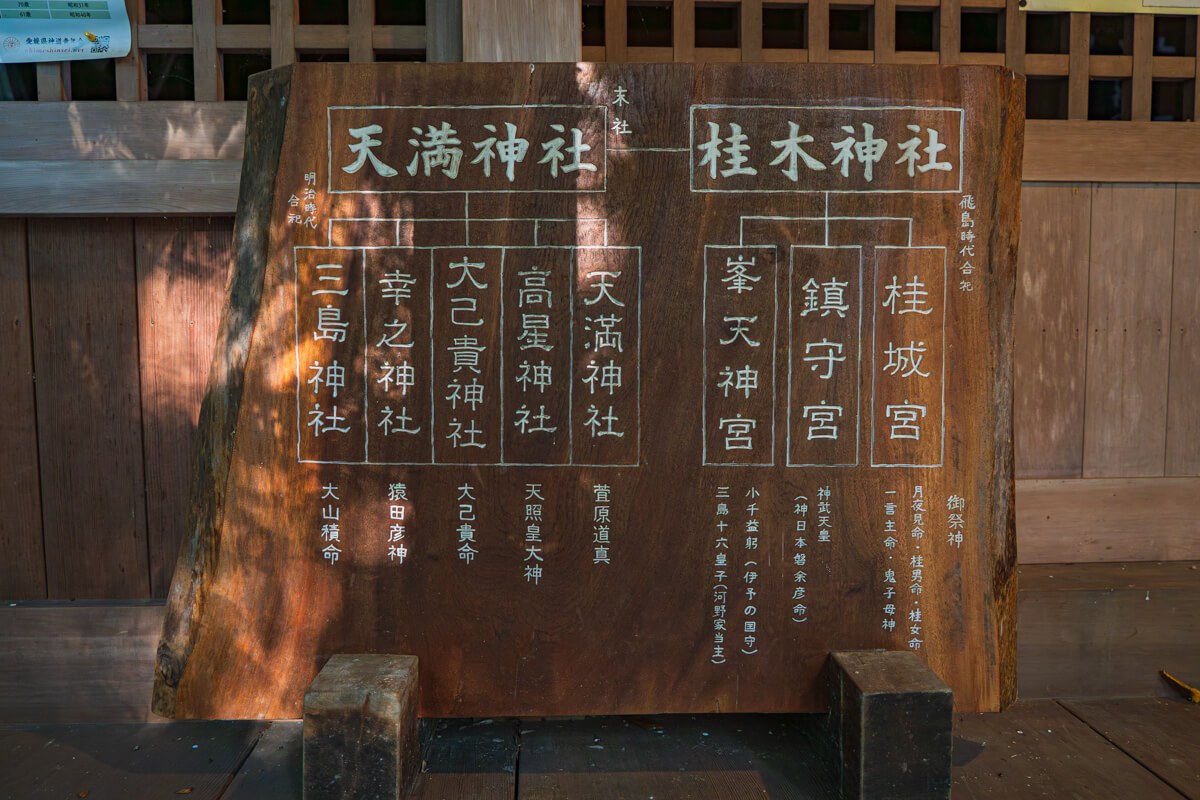 桂木神社
末社
天満神社
飛鳥時代合祀
桂城宮
鎮守宮
峯天神宮
明治時代
合祀
天満神社
高星神社
大己貴神社
幸之神社
三島神社
御祭神
月夜見命・桂男命・桂女命
一言主命・鬼子母神
神武天皇
(神日本磐余彦命)
小千益躬(伊予の国守)
三島十六皇子(河野家当主)
菅原道真
天照皇大神
大己貴命
猿田彦神
大山積命